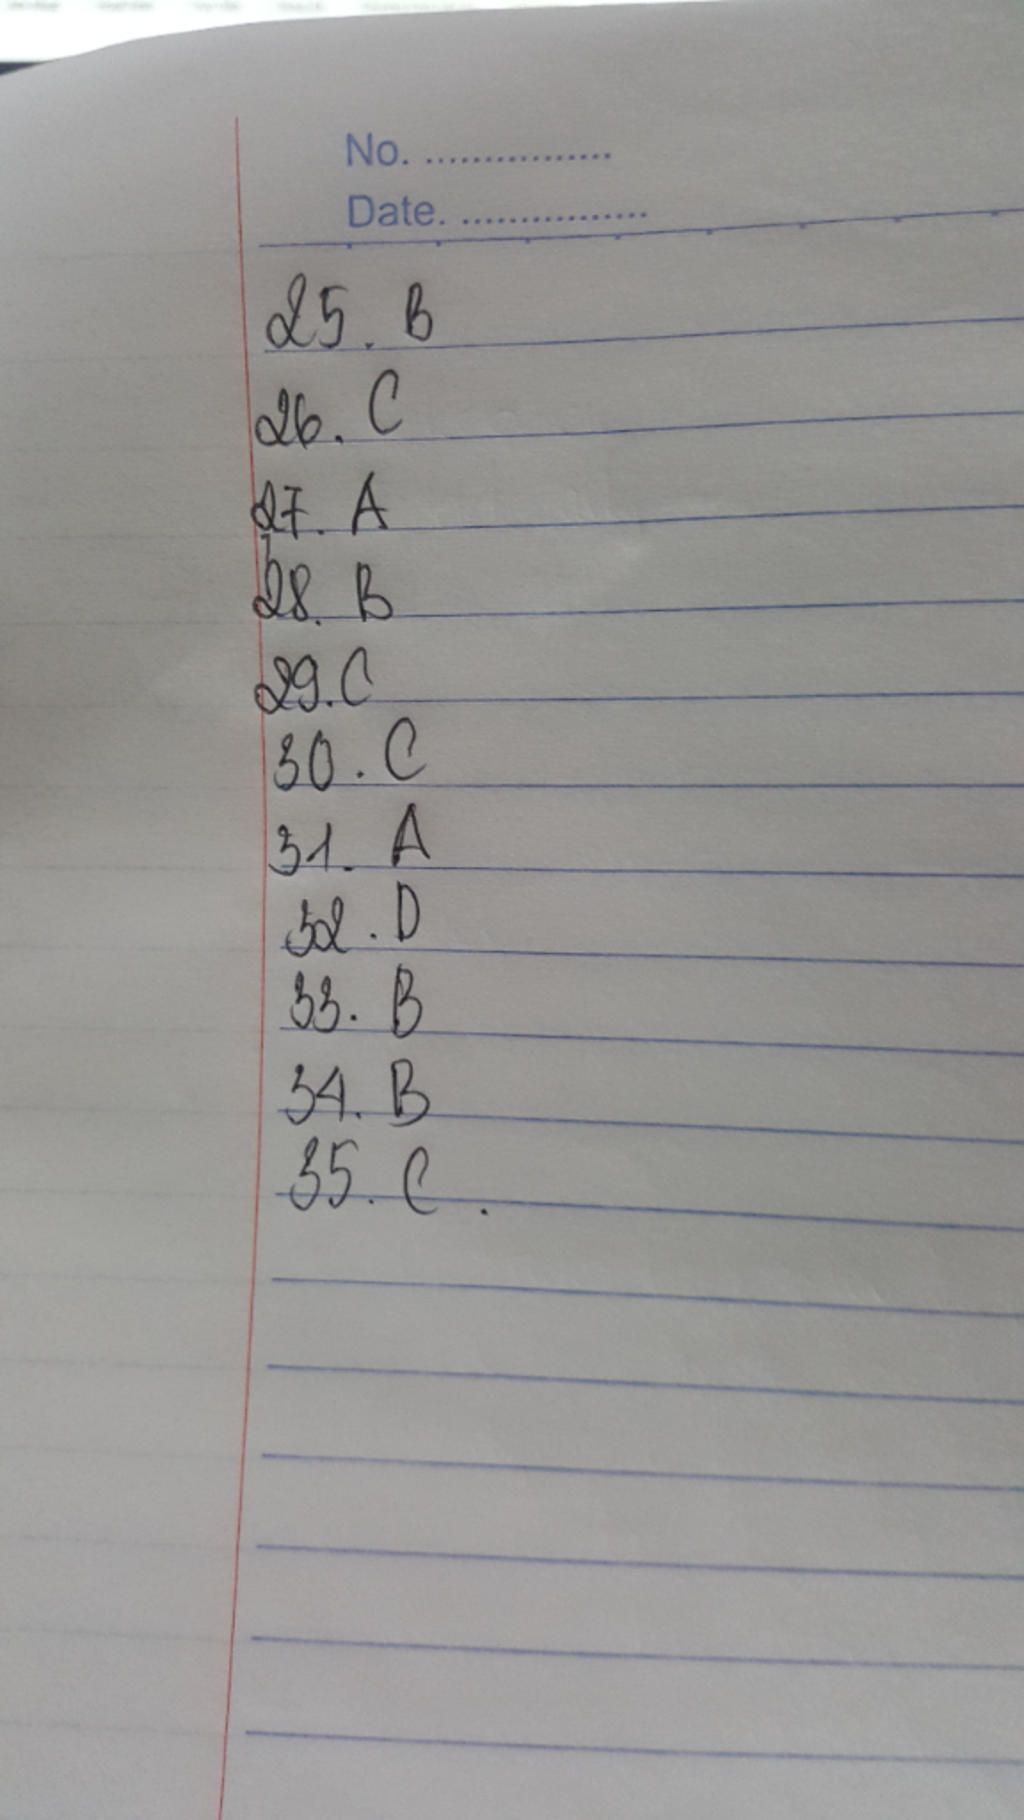 No. ................
Date. ................
25. B
26. C
27. A
28. B
29. C
30. C
31. A
32. D
33. B
34. B
35. C .